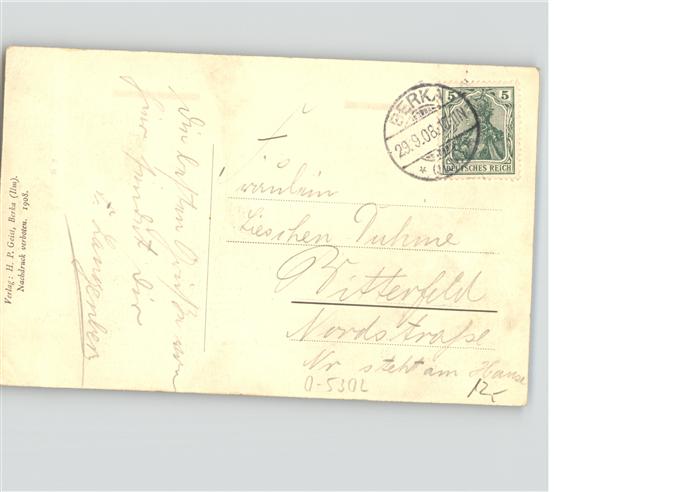 Die besten Grüße von
hier sendet Dir
Verlag: H. P. Geist, Berka (Ilm).
Nachdruck verboten. 1908.
BERKA
29.9.08
5 5
DEUTSCHES REICH
Fräulein
Lieschen Duhme
Bitterfeld
Nordstraße
Nr steht am Hause
O-5302
12,-